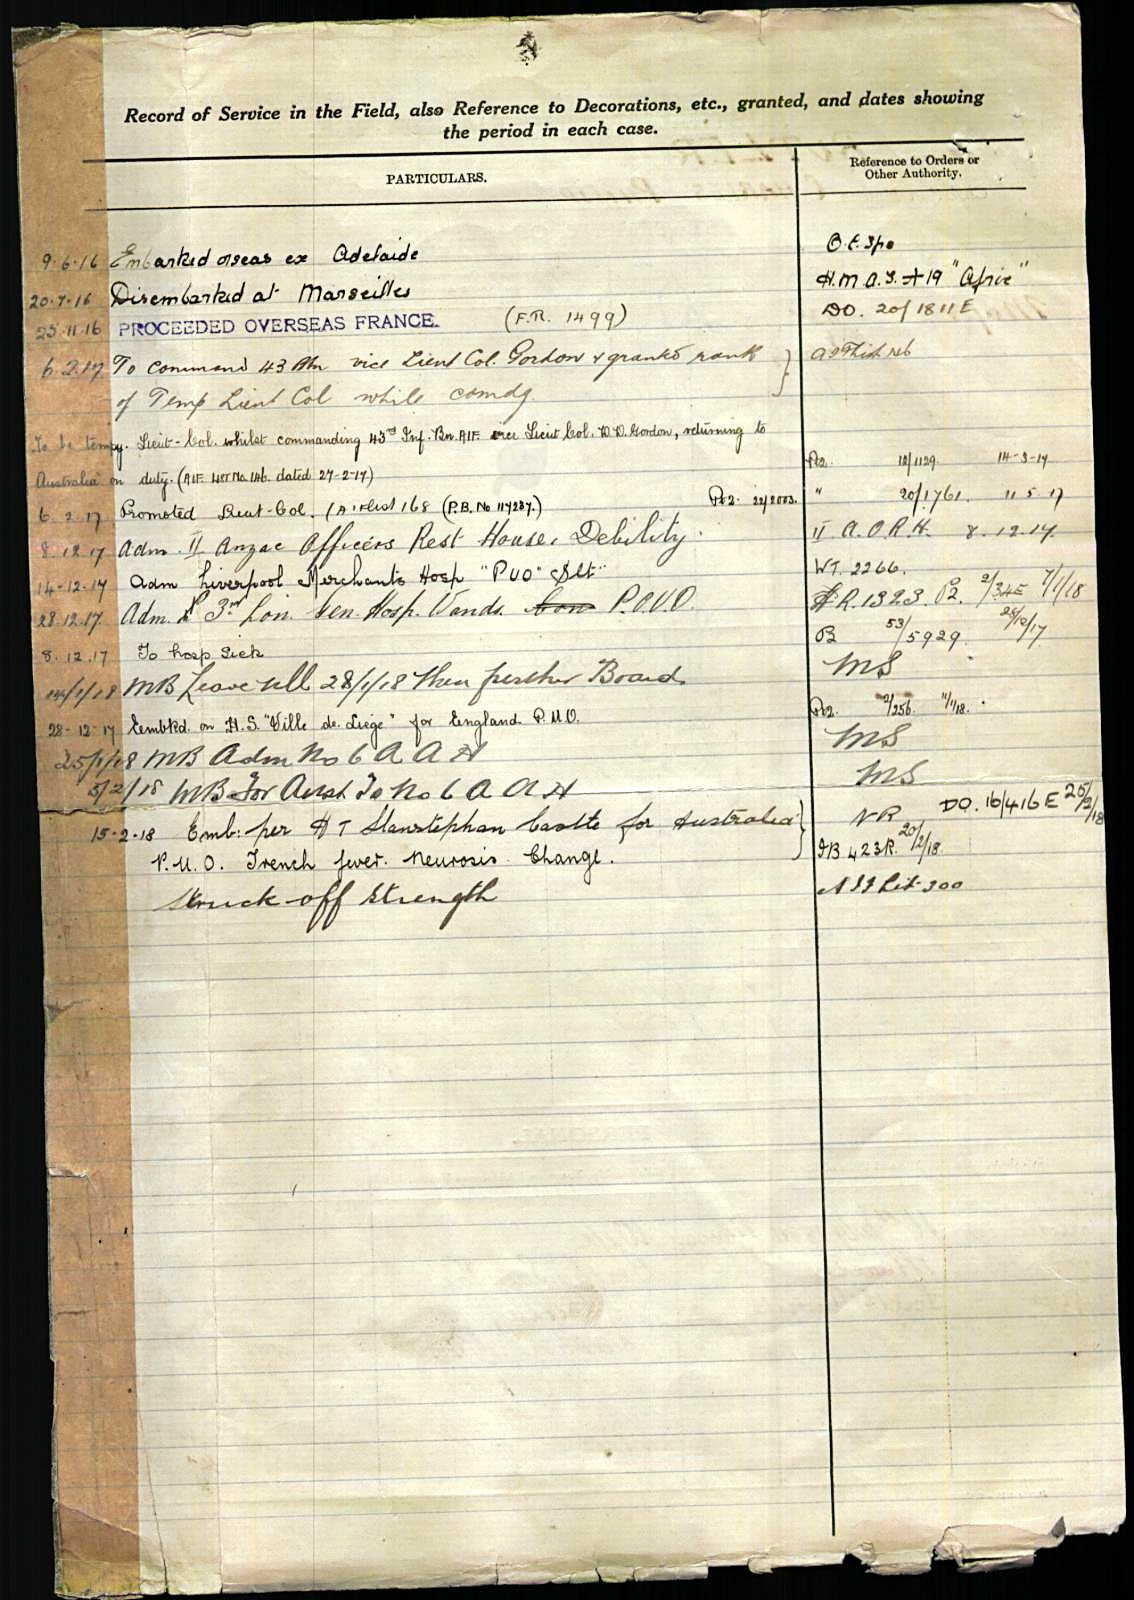 Record of Service in the Field, also Reference to Decorations, etc., granted, and dates showing
the period in each case.
PARTICULARS.
Reference to Orders or
Other Authority.
9.6.16 Embarked o'seas ex Adelaide
20.7.16 Disembarked at Marseilles H.M.A.S. A19 "Afric"
25.11.16 PROCEEDED OVERSEAS FRANCE. (F.R. 1499) DO. 20/1811E
6.2.17 To command 43 Bn vice Lieut Col. Gordon & granted rank
of Temp Lieut Col while comdg.
To be tempy. Lieut-Col. whilst commanding 43rd Inf. Bn. AIF vice Lieut Col. Gordon, returning to
Australia on duty. (AIF List No. 146 dated 27-2-17) 12/1129. 14-3-17
6.2.17 Promoted Lieut-Col. (A.I.F. List 168 (P.B. No 114237.) 22/2003. " 20/1761. 11 5 17
8.12.17 Adm. II Anzac Officers Rest House, Debility. II A.O.R.H. 8.12.17.
14-12-17 Adm Liverpool Merchants Hosp "PUO" Slt" WT. 2266.
28.12.17. Adm. 3rd Lon. Gen. Hosp. Wands. P.O.U.O. 1323 2/34E 7/1/18
8.12.17 To hosp sick B 53/5929. 28/12/17
14/1/18 MB Leave till 28/1/18 then further Board. MS
28-12-17 Embkd. on H.S. "Ville de Liege" for England P.U.O. 2/256. 11/1/18.
25/1/18 MB Adm No 6 A A H MS
5/2/18 MB For Aust To No 6 A A H MS
15-2-18 Emb: per H T Llanstephan Castle for Australia NR DO. 16/416E 25/2/18
P.U.O. Trench fever. Neurosis. Change. 423R. 20/2/18.
Struck off strength